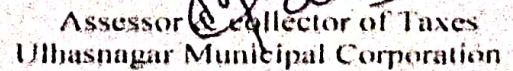 Assessor & collector of Taxes
Ulhasnagar Municipal Corporation